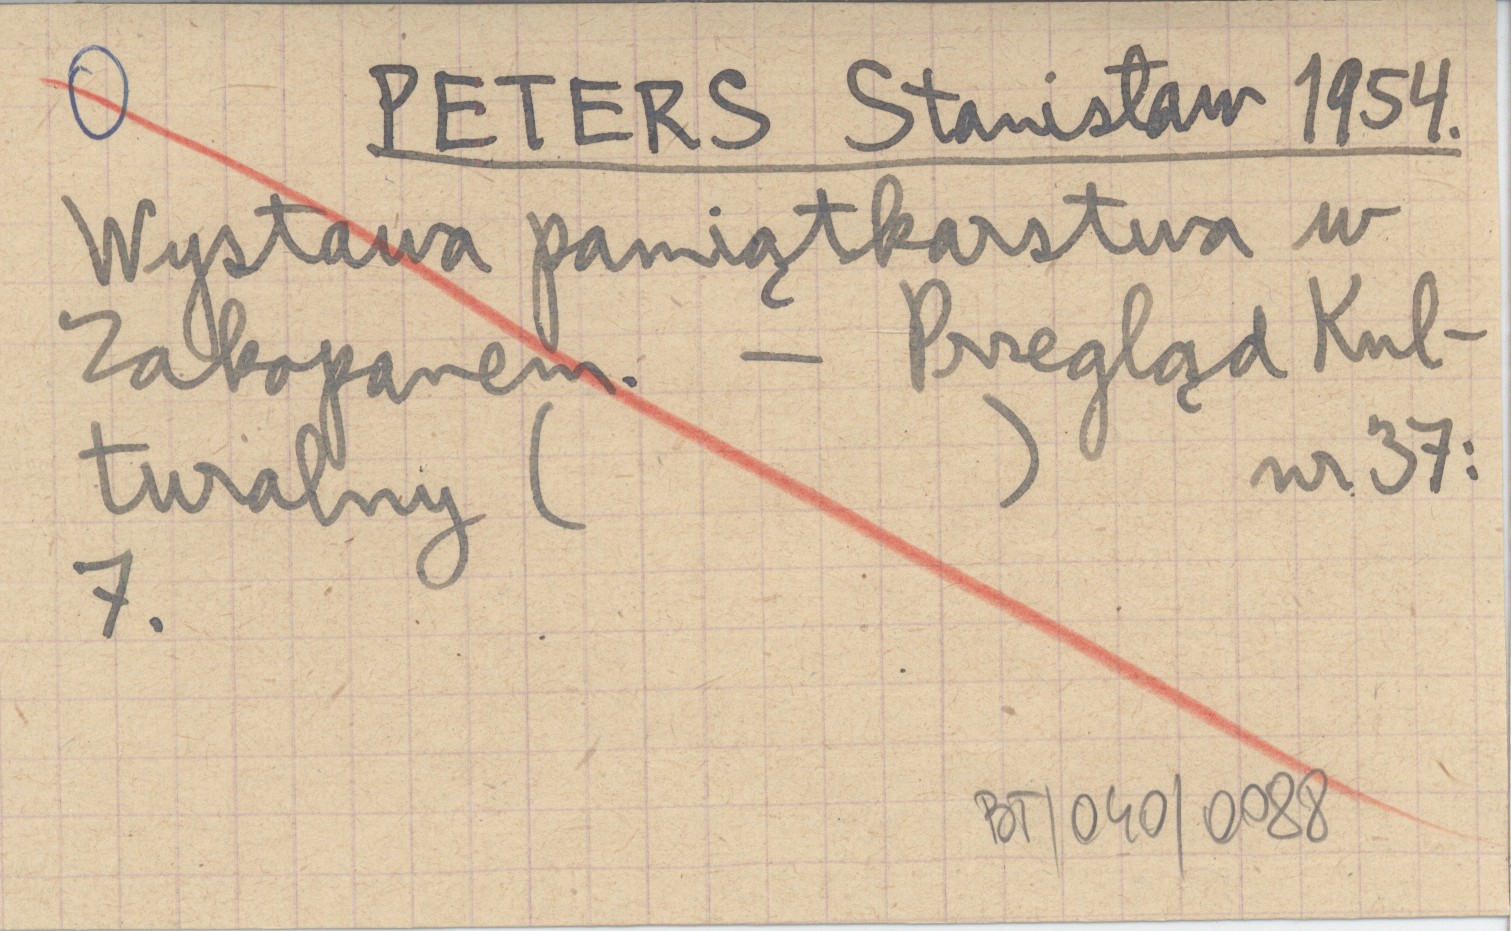 PETERS Stanisław 1954.
Wystawa pamiątkarstwa w
Zakopanem. — Przegląd Kul-
turalny (          ) nr 37:
7.
BT/040/0088